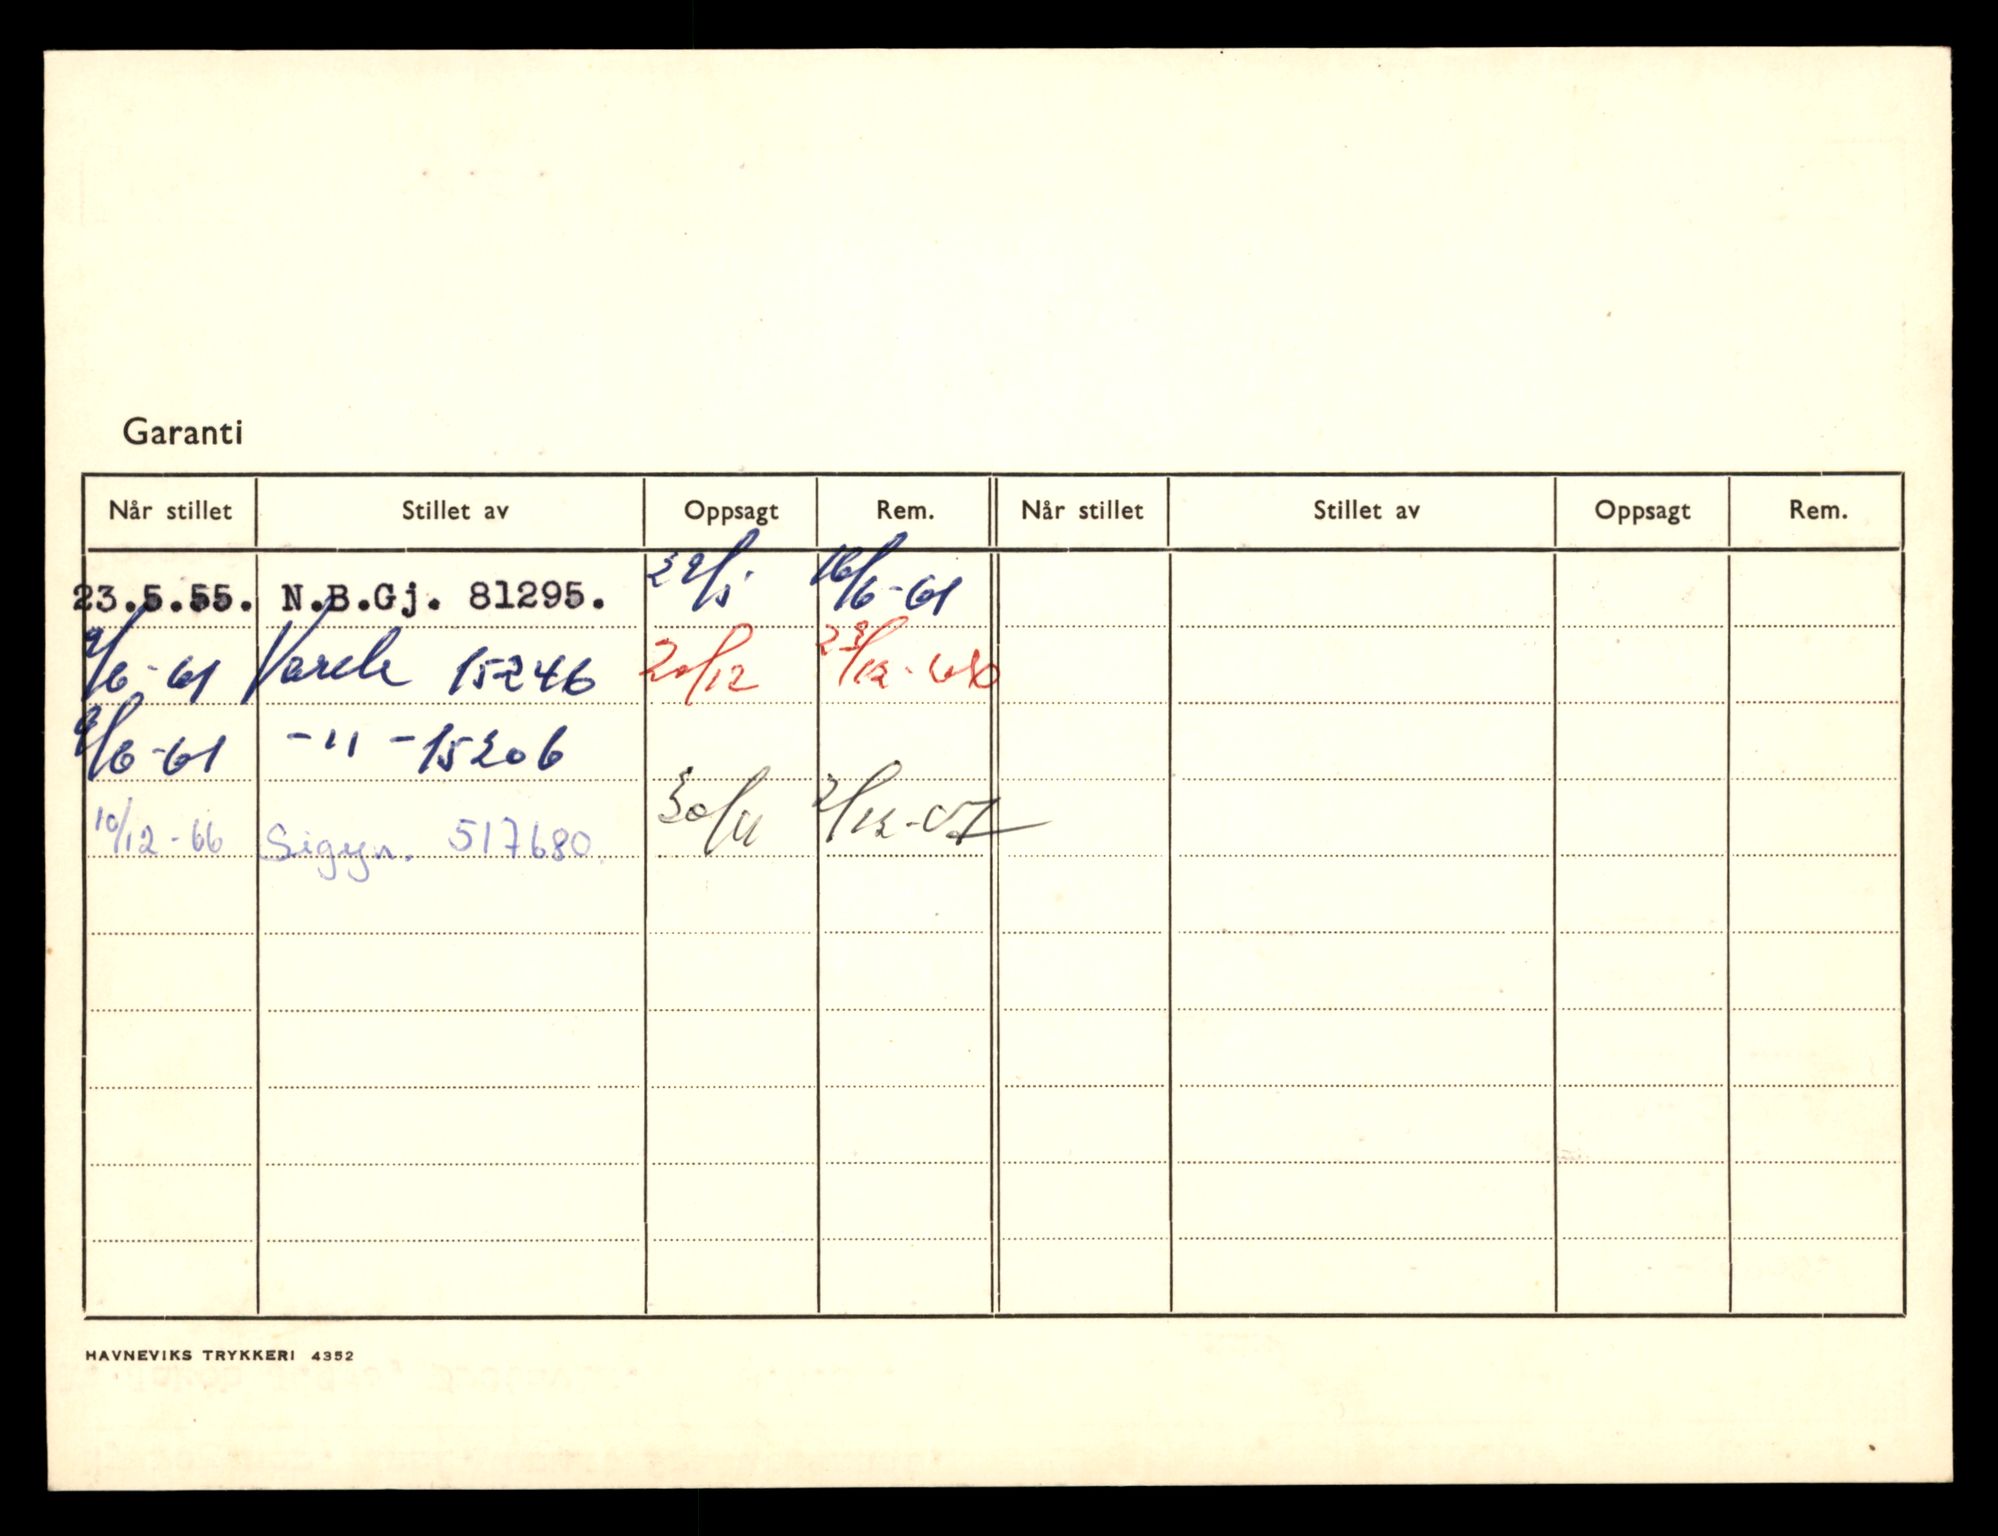 Garanti
Når stillet Stillet av Oppsagt Rem. Når stillet Stillet av Oppsagt Rem.
23.5.55. N.B.Gj. 81295. 29/5 16/6-61
9/6-61 15246 20/12 23/12-
9/6-61 -"- 15206
10/12-66 Sigyn. 517680. 30/11 2/12-
HAVNEVIKS TRYKKERI 4352